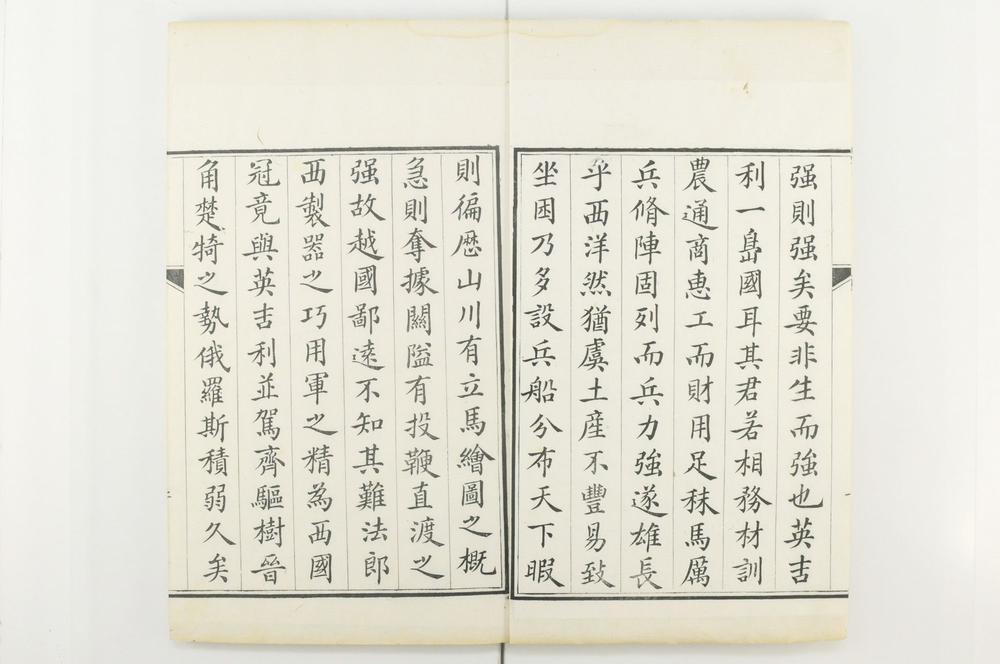 强則强矣要非生而強也英吉
利一島國耳其君若相務材訓
農通商惠工而財用足秣馬厲
兵脩陣固列而兵力強遂雄長
乎西洋然猶虞土産不豐易致
坐困乃多設兵船分布天下暇
則徧歴山川有立馬繪圖之概
急則奪據關隘有投鞭直渡之
强故越國鄙遠不知其難法郎
西製器之巧用軍之精為西國
冠竟與英吉利並駕齊驅樹晉
角楚犄之勢俄羅斯積弱久矣